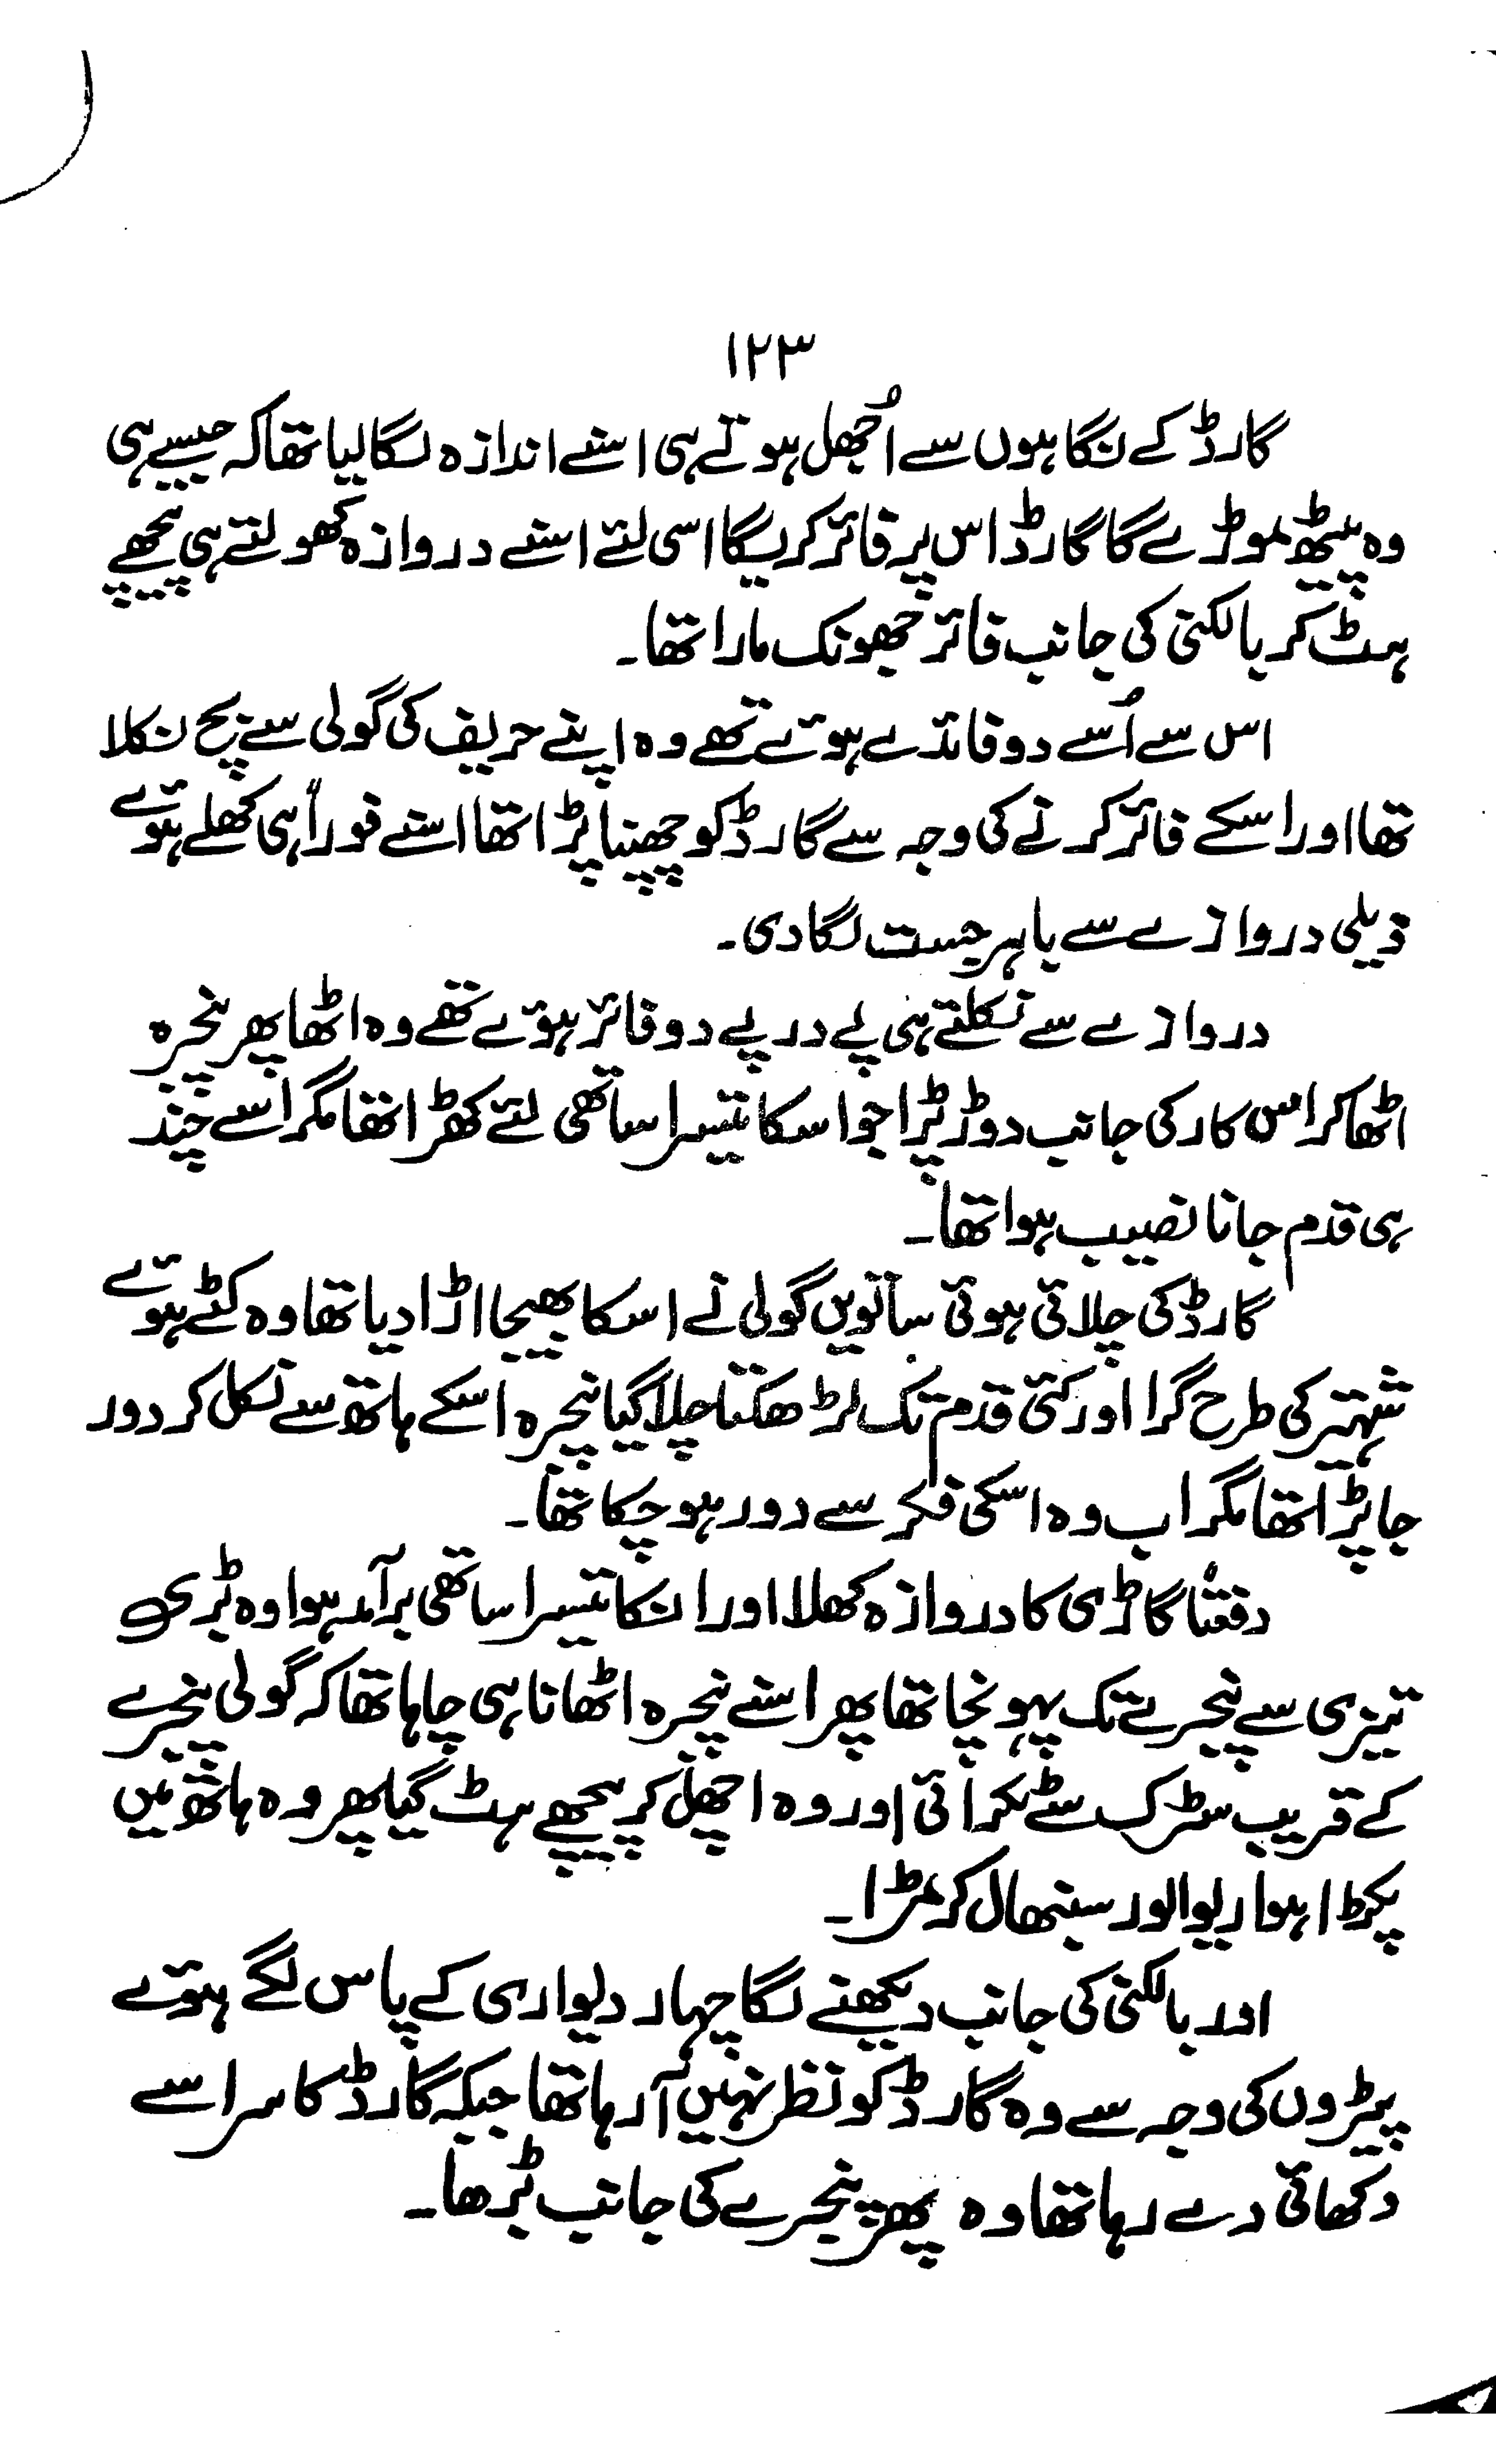 ۱۲۳
گارڈ کے نگاہوں سے اُجھل ہوتے ہی اسنے اندازہ لگالیا تھا کہ جیسے ہی
وہ پیٹھ موڑے گا گارڈ اس پر فائر کریگا اسی لئے اسنے دروازہ کھولتے ہی پیچھے
ہٹ کر بالکنی کی جانب فائر جھونک مارا تھا۔
اس سے اُسے دو فائدے ہوئے تھے وہ اپنے حریف کی گولی سے بچ نکلا
تھا اور اسکے فائر کرنے کی وجہ سے گارڈ کو چھپنا پڑا تھا اسنے فوراً ہی کھلے ہوئے
ذیلی دروازے سے باہر جست لگا دی۔
دروازے سے نکلتے ہی پے در پے دو فائر ہوئے تھے وہ اٹھا پھر پنجرہ
اٹھا کر اس کار کی جانب دوڑ پڑا جو اسکا تیسرا ساتھی لئے کھڑا تھا مگر اسے چند
ہی قدم جانا نصیب ہوا تھا۔
گارڈ کی چلائی ہوئی ساتویں گولی نے اسکا بھیجا اڑا دیا تھا وہ کٹے ہوئے
شہتیر کی طرح گرا اور کئی قدم تک لڑھکتا چلا گیا پنجرہ اسکے ہاتھ سے نکل کر دور
جا پڑا تھا مگر اب وہ اسکی فکر سے دور ہو چکا تھا۔
دفعتاً گاڑی کا دروازہ کھلا اور انکا تیسرا ساتھی برآمد ہوا وہ بڑی
تیزی سے پنجرے تک پہونچا تھا پھر اسنے پنجرہ اٹھانا ہی چاہا تھا کہ گولی پنجرے
کے قریب سڑک سے ٹکرائی اور وہ اچھل کر پیچھے ہٹ گیا پھر وہ ہاتھ میں
پکڑا ہوا ریوالور سنبھال کر مڑا۔
اور بالکنی کی جانب دیکھنے لگا چہار دیواری کے پاس لگے ہوئے
پیڑوں کی وجہ سے وہ گارڈ کو نظر نہیں آرہا تھا جبکہ گارڈ کا سر اسے
دکھائی دے رہا تھا وہ پھر پنجرے کی جانب بڑھا۔